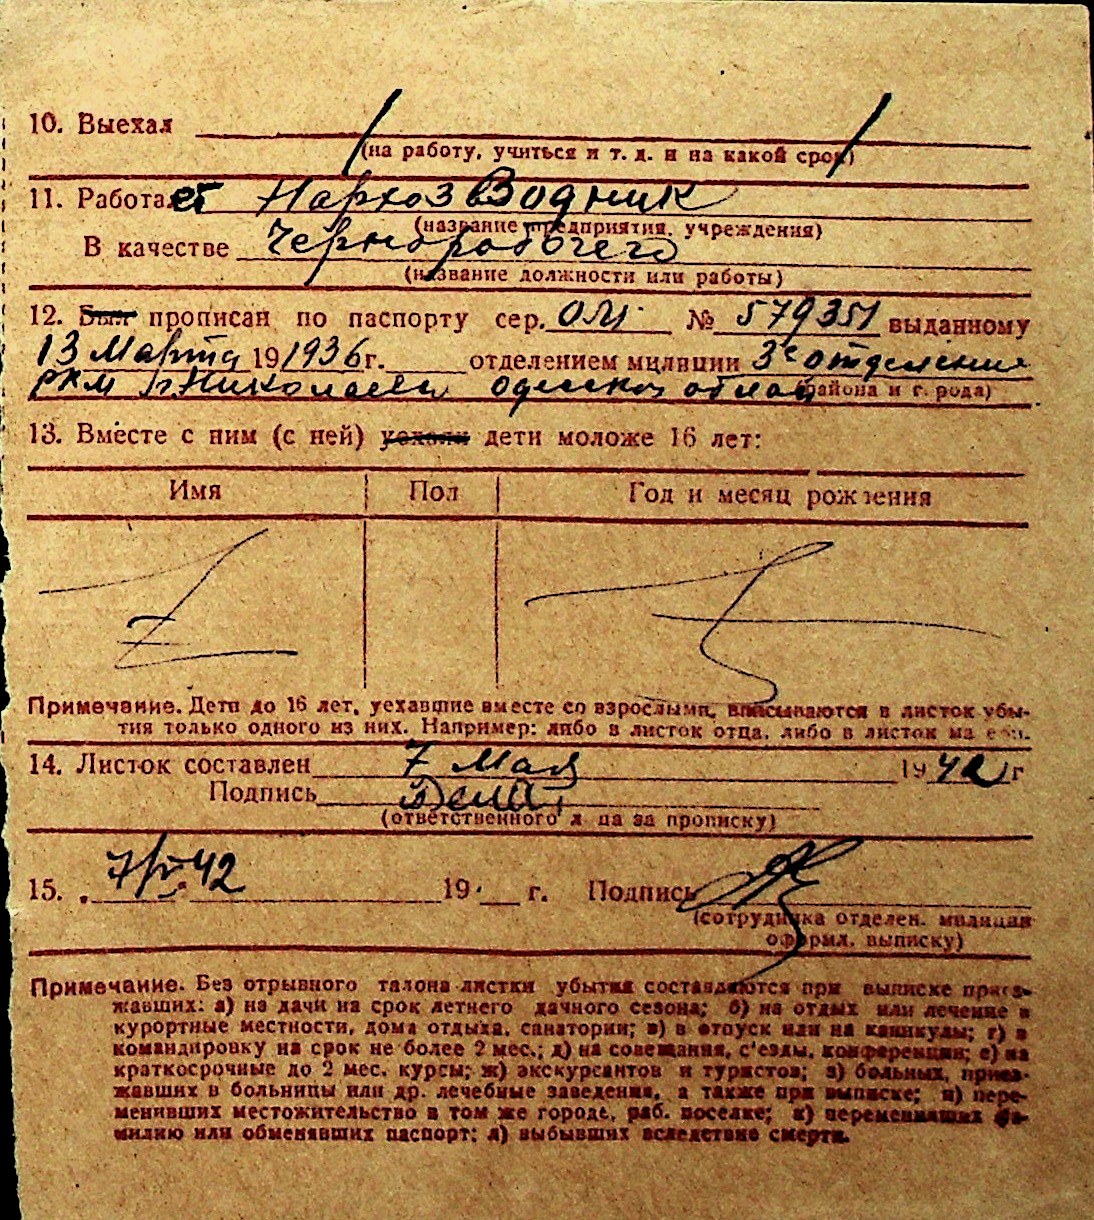 10. Выехал
(на работу, учиться и т. д. и на какой срок)
11. Работает Нархоз Водник
(название предприятия, учреждения)
В качестве Чернорабочего
(название должности или работы)
12. Был прописан по паспорту сер. № 579351 выданному
13 Марта 19 1936 г. отделением милиции 3е отделение
РКМ г. Николаева Одесской облас (района и города)
13. Вместе с ним (с ней) уехали дети моложе 16 лет:
Имя Пол Год и месяц рождения
Примечание. Дети до 16 лет, уехавшие вместе со взрослыми, вписываются в листок убы-
тия только одного из них. Например: либо в листок отца, либо в листок матери.
14. Листок составлен 7 Мая 1942 г
Подпись
(ответственного лица за прописку)
15. 7/V 42 19 г. Подпись
(сотрудника отделен. милиции
оформл. выписку)
Примечание. Без отрывного талона листки убытия составляются при выписке приез-
жавших: а) на дачи на срок летнего дачного сезона; б) на отдых или лечение в
курортные местности, дома отдыха, санатории; в) в отпуск или на каникулы; г) в
командировку на срок не более 2 мес.; д) на совещания, с'езды, конференции; е) на
краткосрочные до 2 мес. курсы; ж) экскурсантов и туристов; з) больных, приез-
жавших в больницы или др. лечебные заведения, а также при выписке; и) пере-
менивших местожительство в том же городе, раб. поселке; к) переменивших фа-
милию или обменявших паспорт; л) выбывших вследствие смерти.